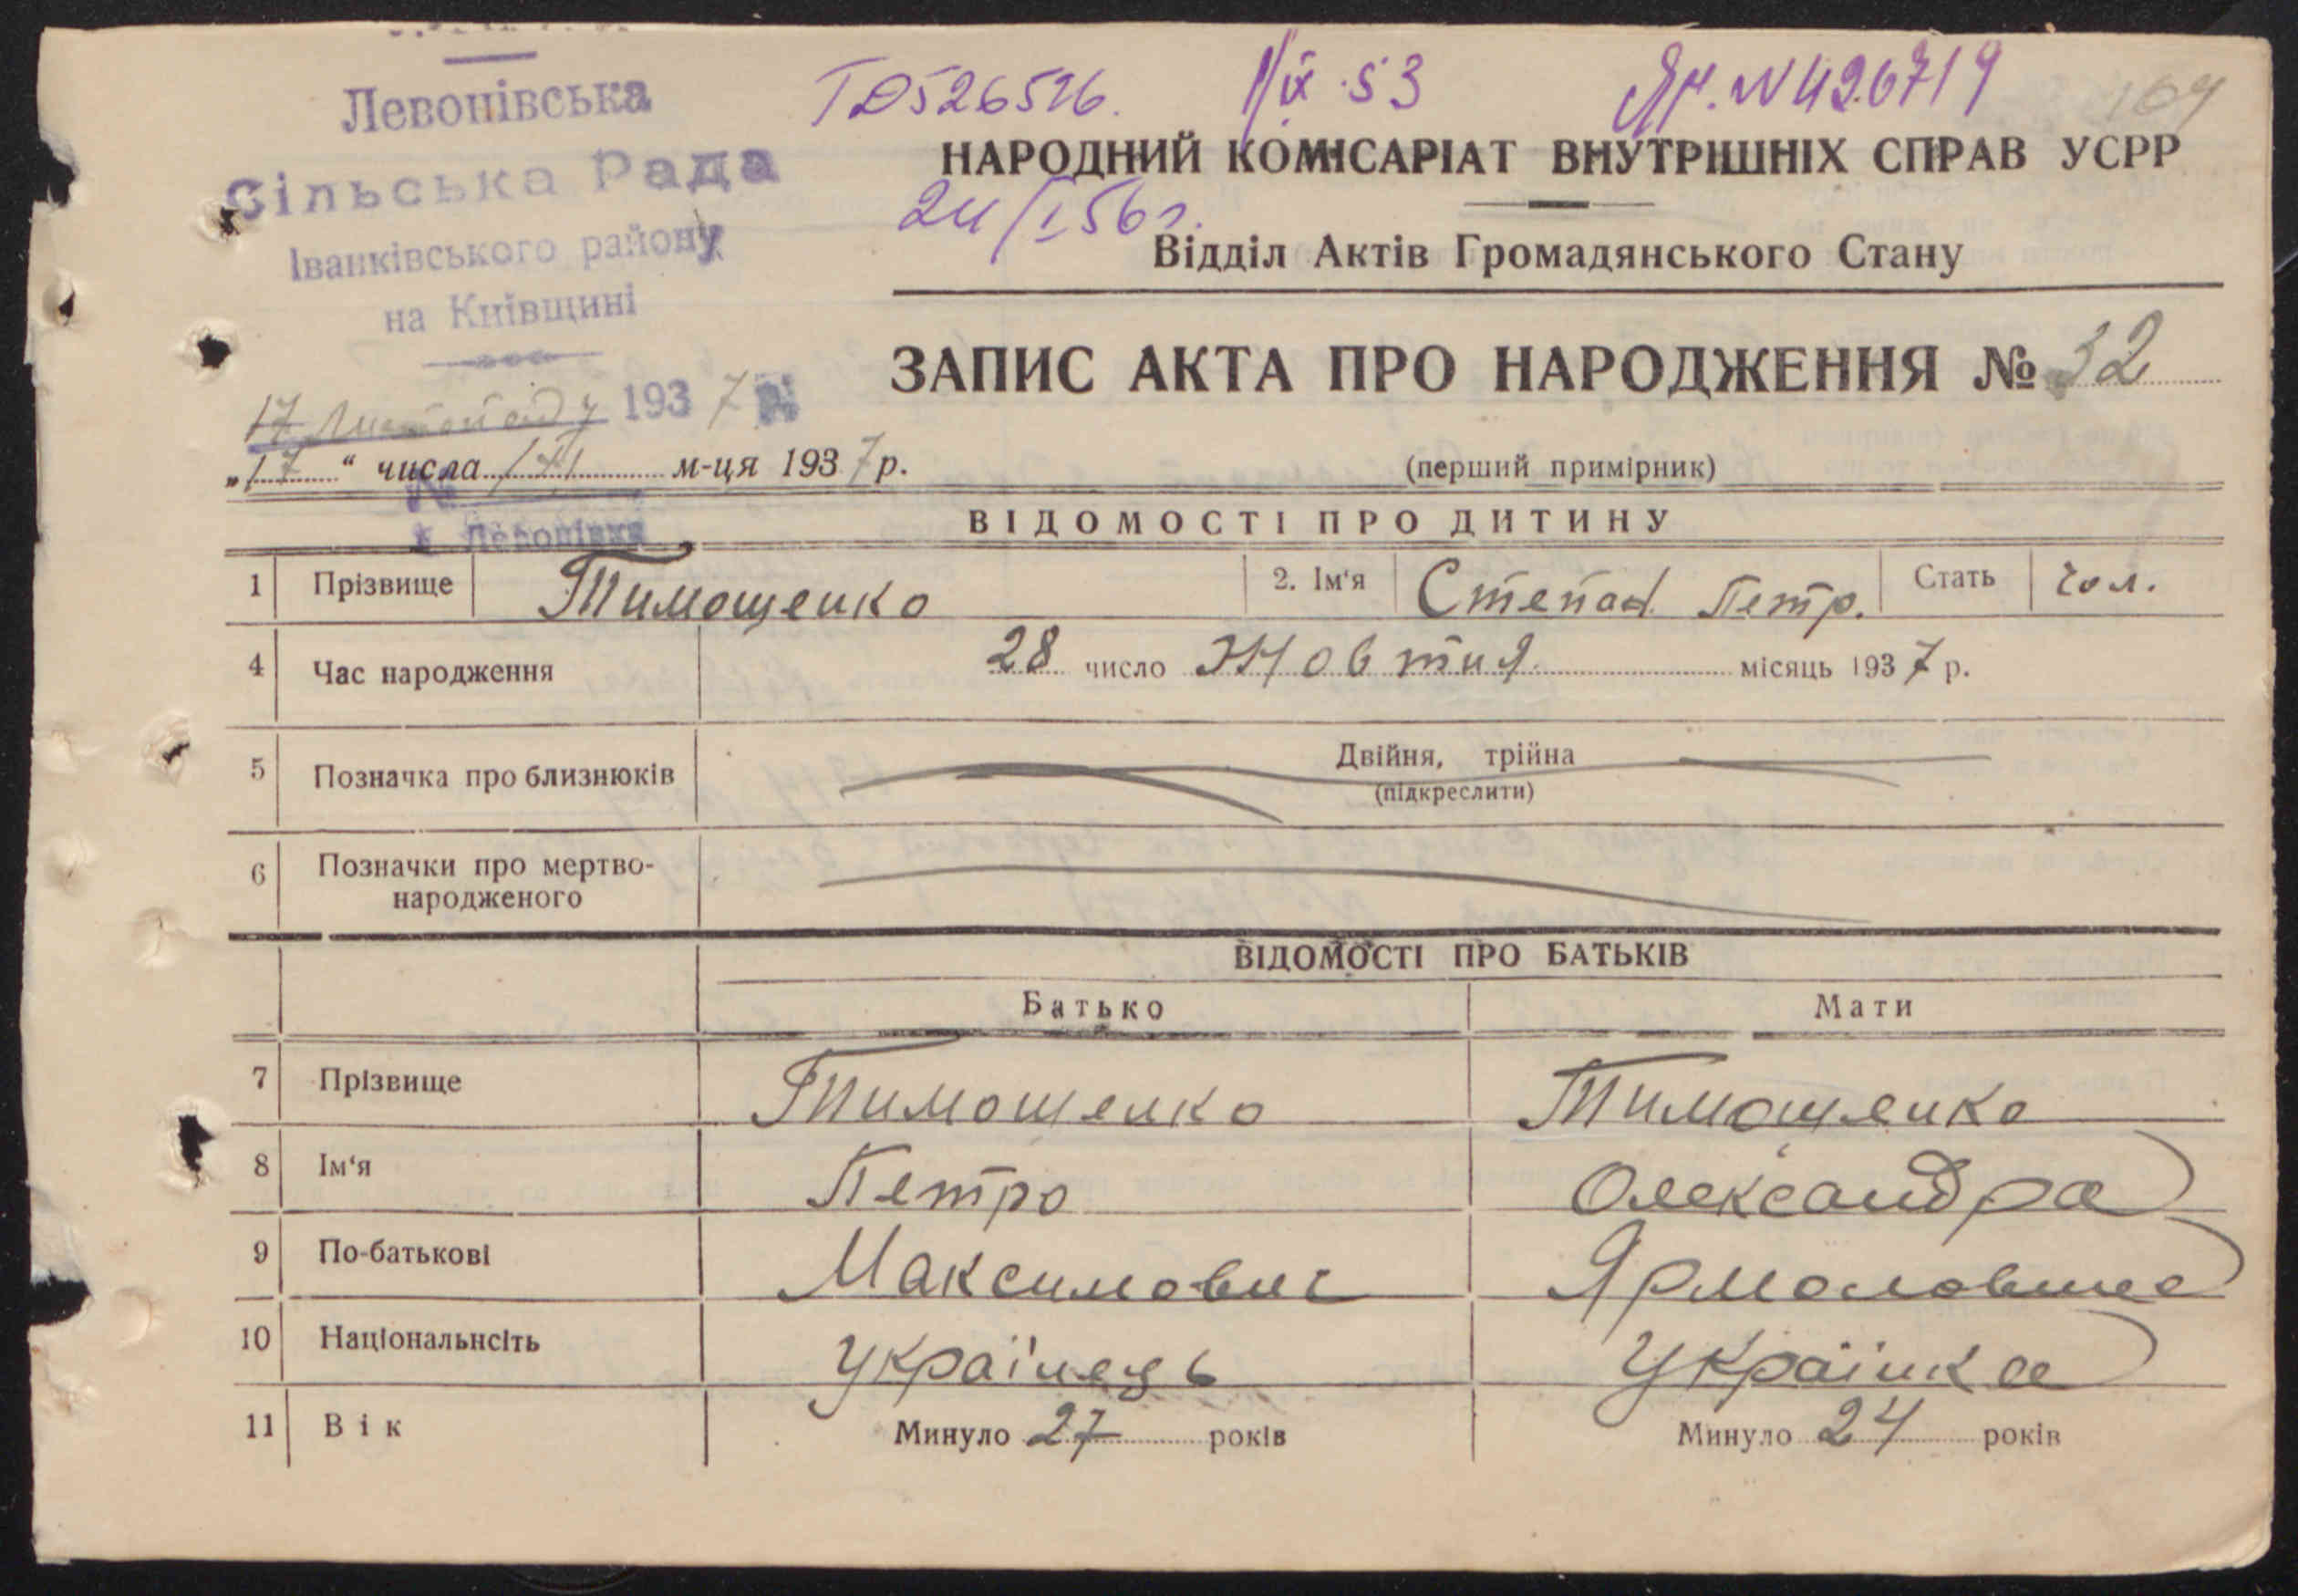 Левонівська
Сільська Рада
Іванківського району
на Київщині
17 Листопаду 1937 р.
ТД526526. 1/ІХ.53 Яч.N426719
169
НАРОДНИЙ КОМІСАРІАТ ВНУТРІШНІХ СПРАВ УСРР
24/І 56г.
Відділ Актів Громадянського Стану
ЗАПИС АКТА ПРО НАРОДЖЕННЯ № 32
„17“ числа ХІ м-ця 1937р.
(перший примірник)
№
Левонівка
ВІДОМОСТІ ПРО ДИТИНУ
1 Прізвище Тимошенко 2. Ім‘я Степан Петр. Стать чол.
4 Час народження 28 число Жовтня місяць 1937 р.
5 Позначка про близнюків Двійня, трійна
(підкреслити)
6 Позначки про мертво-
народженого
ВІДОМОСТІ ПРО БАТЬКІВ
Батько Мати
7 Прізвище Тимошенко Тимошенко
8 Ім‘я Петро Олександра
9 По-батькові Максимович Ярмоловна
10 Національнсіть Українець Українка
11 Вік Минуло 27 років Минуло 24 років